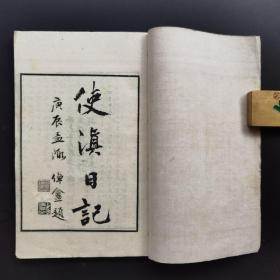 使滇日記
庚辰孟陬
題